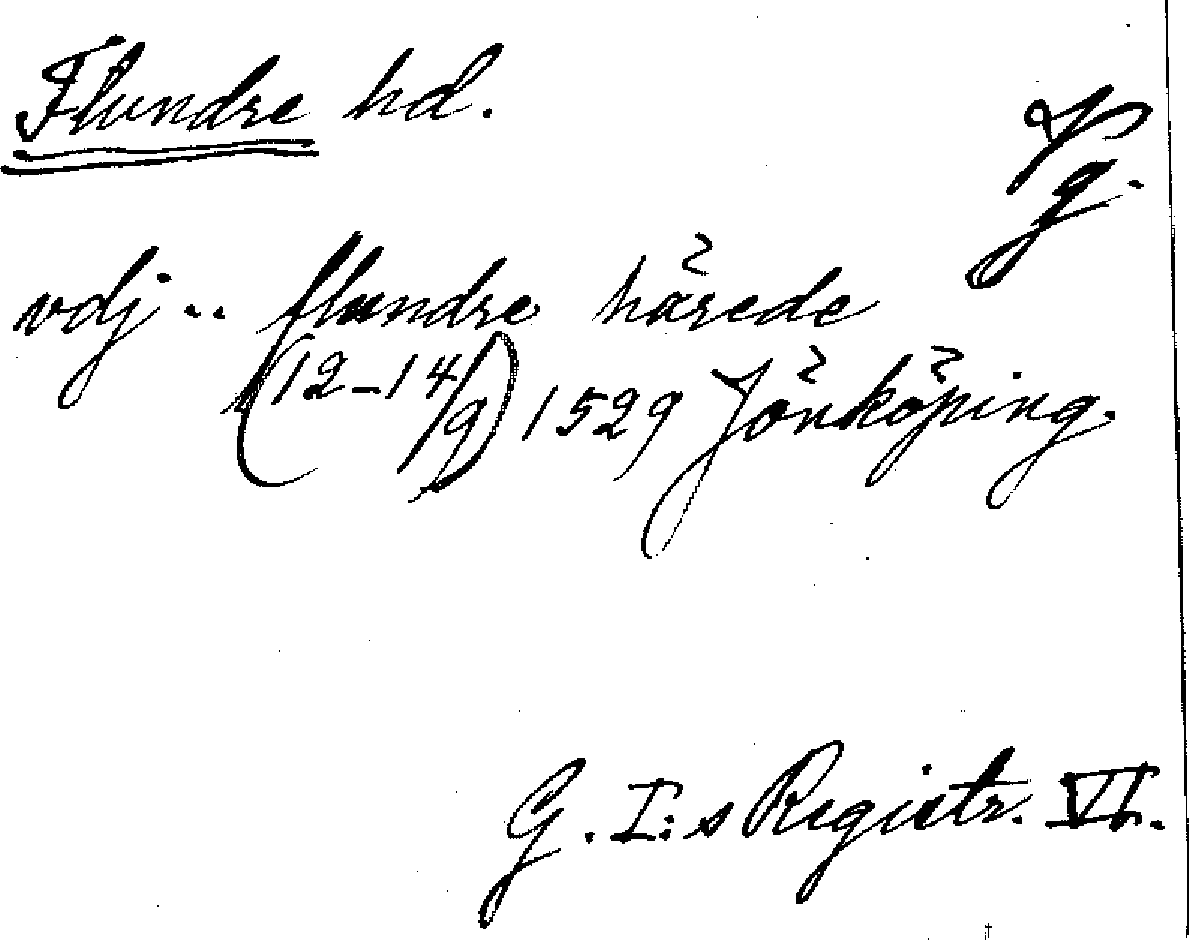 Flundre hd.
Vg.
vdj .. flundre härede
(12-14/9) 1529 Jönköping.
G. I:s Registr. VI.